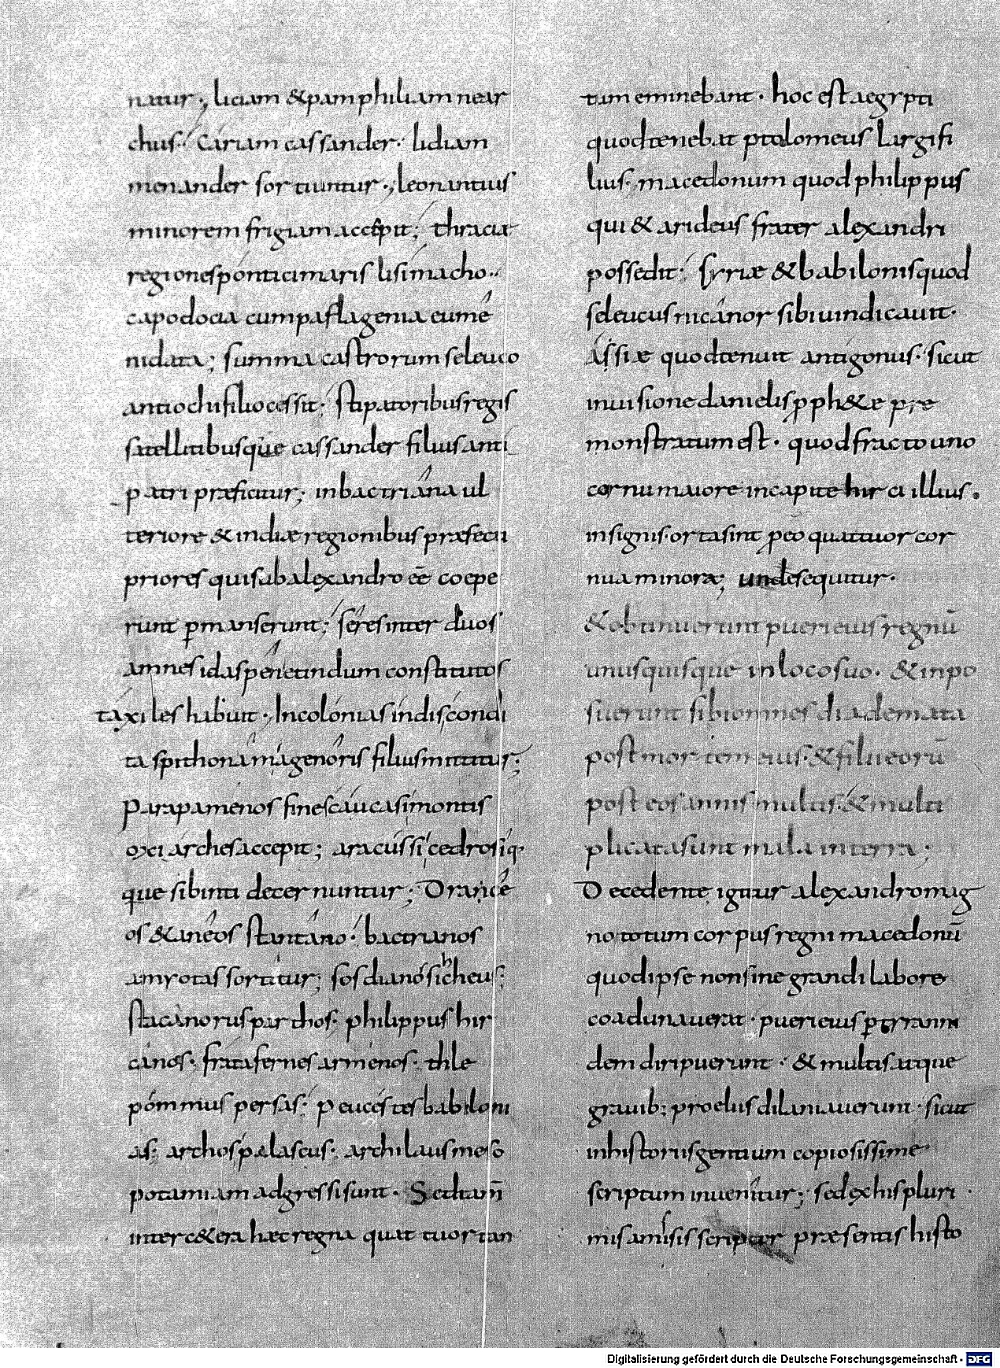 natur; liciam & pamphiliam near
chus; Cariam cassander; lidiam
menander sortiuntur; leonantius
minorem frigiam accepit; thracia
regiones pontici maris lisimacho;
capodocia cum paflagenia eume
ni data; summa castrorum seleuco
antiochi filio cessit; stipatoribus regis
satellitibusque cassander filius anti
patri praeficitur; in bactriana ul
teriore & indiae regionibus praefecti
priores qui sub alexandro eē coepe
runt ꝑmanserunt; seres inter duos
amnes idaspen et indum constitutos
taxiles habuit; In colonias in indis condi
tas pithona magenoris filius mittitur;
Parapamenos fines caucasi montis
oxciarches accepit; aracussi cedrosiq;
que sibinti decernuntur; Drance
os & aneos stantano; bactrianos
amyotas sortitur; sosdianos sicheus;
stacanorus parthos; philippus hir
canos; fratafernes armenos; thle
pommus persas; peucestes babiloni
as; archos palascus; archilaus meso
potamiam adgressi sunt. Sed tam̄
inter cetera haec regna quattuor tan
tum eminebant. hoc est aegypti
quod tenebat ptolomeus Largi fi
lius; macedonum quod philippus
qui & arideus frater alexandri
possedit; syriae & babilonis quod
seleucus nicanor sibi uindicauit.
Assiae quod tenuit antigonus. sicut
in uisione danielis ꝓph&ae pre
monstratum est. quod fracto uno
cornu maiore in capite hirci illius.
insignis orta sint p eo quattuor cor
nua minora; unde sequitur.
& obtinuerunt pueri eius regnū
unusquisque in loco suo. & inpo
suerunt sibi omnes diademata
post mortem eius. & filii eorū
post eos annis multis. & multi
plicata sunt mala in terra;
Decedente igitur alexandro mag
no totum corpus regni macedonū
quod ipse non sine grandi labore
coadunauerat. pueri eius ꝑ tyranni
dem diripuerunt. & multis atque
grauib; proeliis dilaniauerunt. sicut
in historiis gentium copiosissime
scriptum inuenitur; sed ex his pluri
mis amisis scriptor praesentis histo
Digitalisierung gefördert durch die Deutsche Forschungsgemeinschaft - DFG